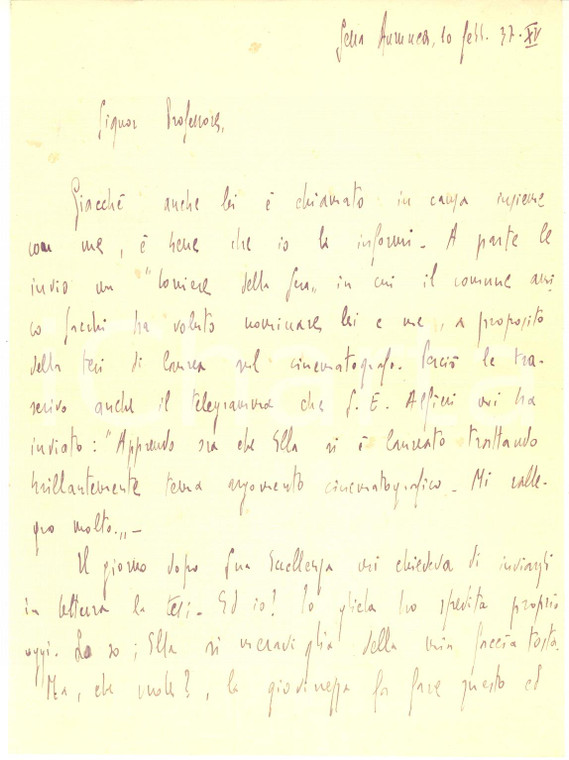 Sessa Aurunca, 10 febb. 37. XV
Signor Professore,
Giacchè anche lei è chiamato in causa insieme
con me, è bene che io la informi. A parte le
invio un "Corriere della Sera„ in cui il comune ami-
co Sacchi ha voluto nominare lei e me, a proposito
della tesi di laurea sul cinematografo. Perciò le tra-
scrivo anche il telegramma che S. E. Alfieri mi ha
inviato: "Apprendo ora che Ella si è laureato trattando
brillantemente tema argomento cinematografico. Mi ralle-
gro molto.„ —
Il giorno dopo Sua Eccellenza mi chiedeva di inviargli
in lettura la tesi. Ed io? Io gliela ho spedita proprio
oggi. Lo so; Ella si meraviglia della mia faccia tosta.
Ma, che vuole?, la giovinezza fa fare questo ed